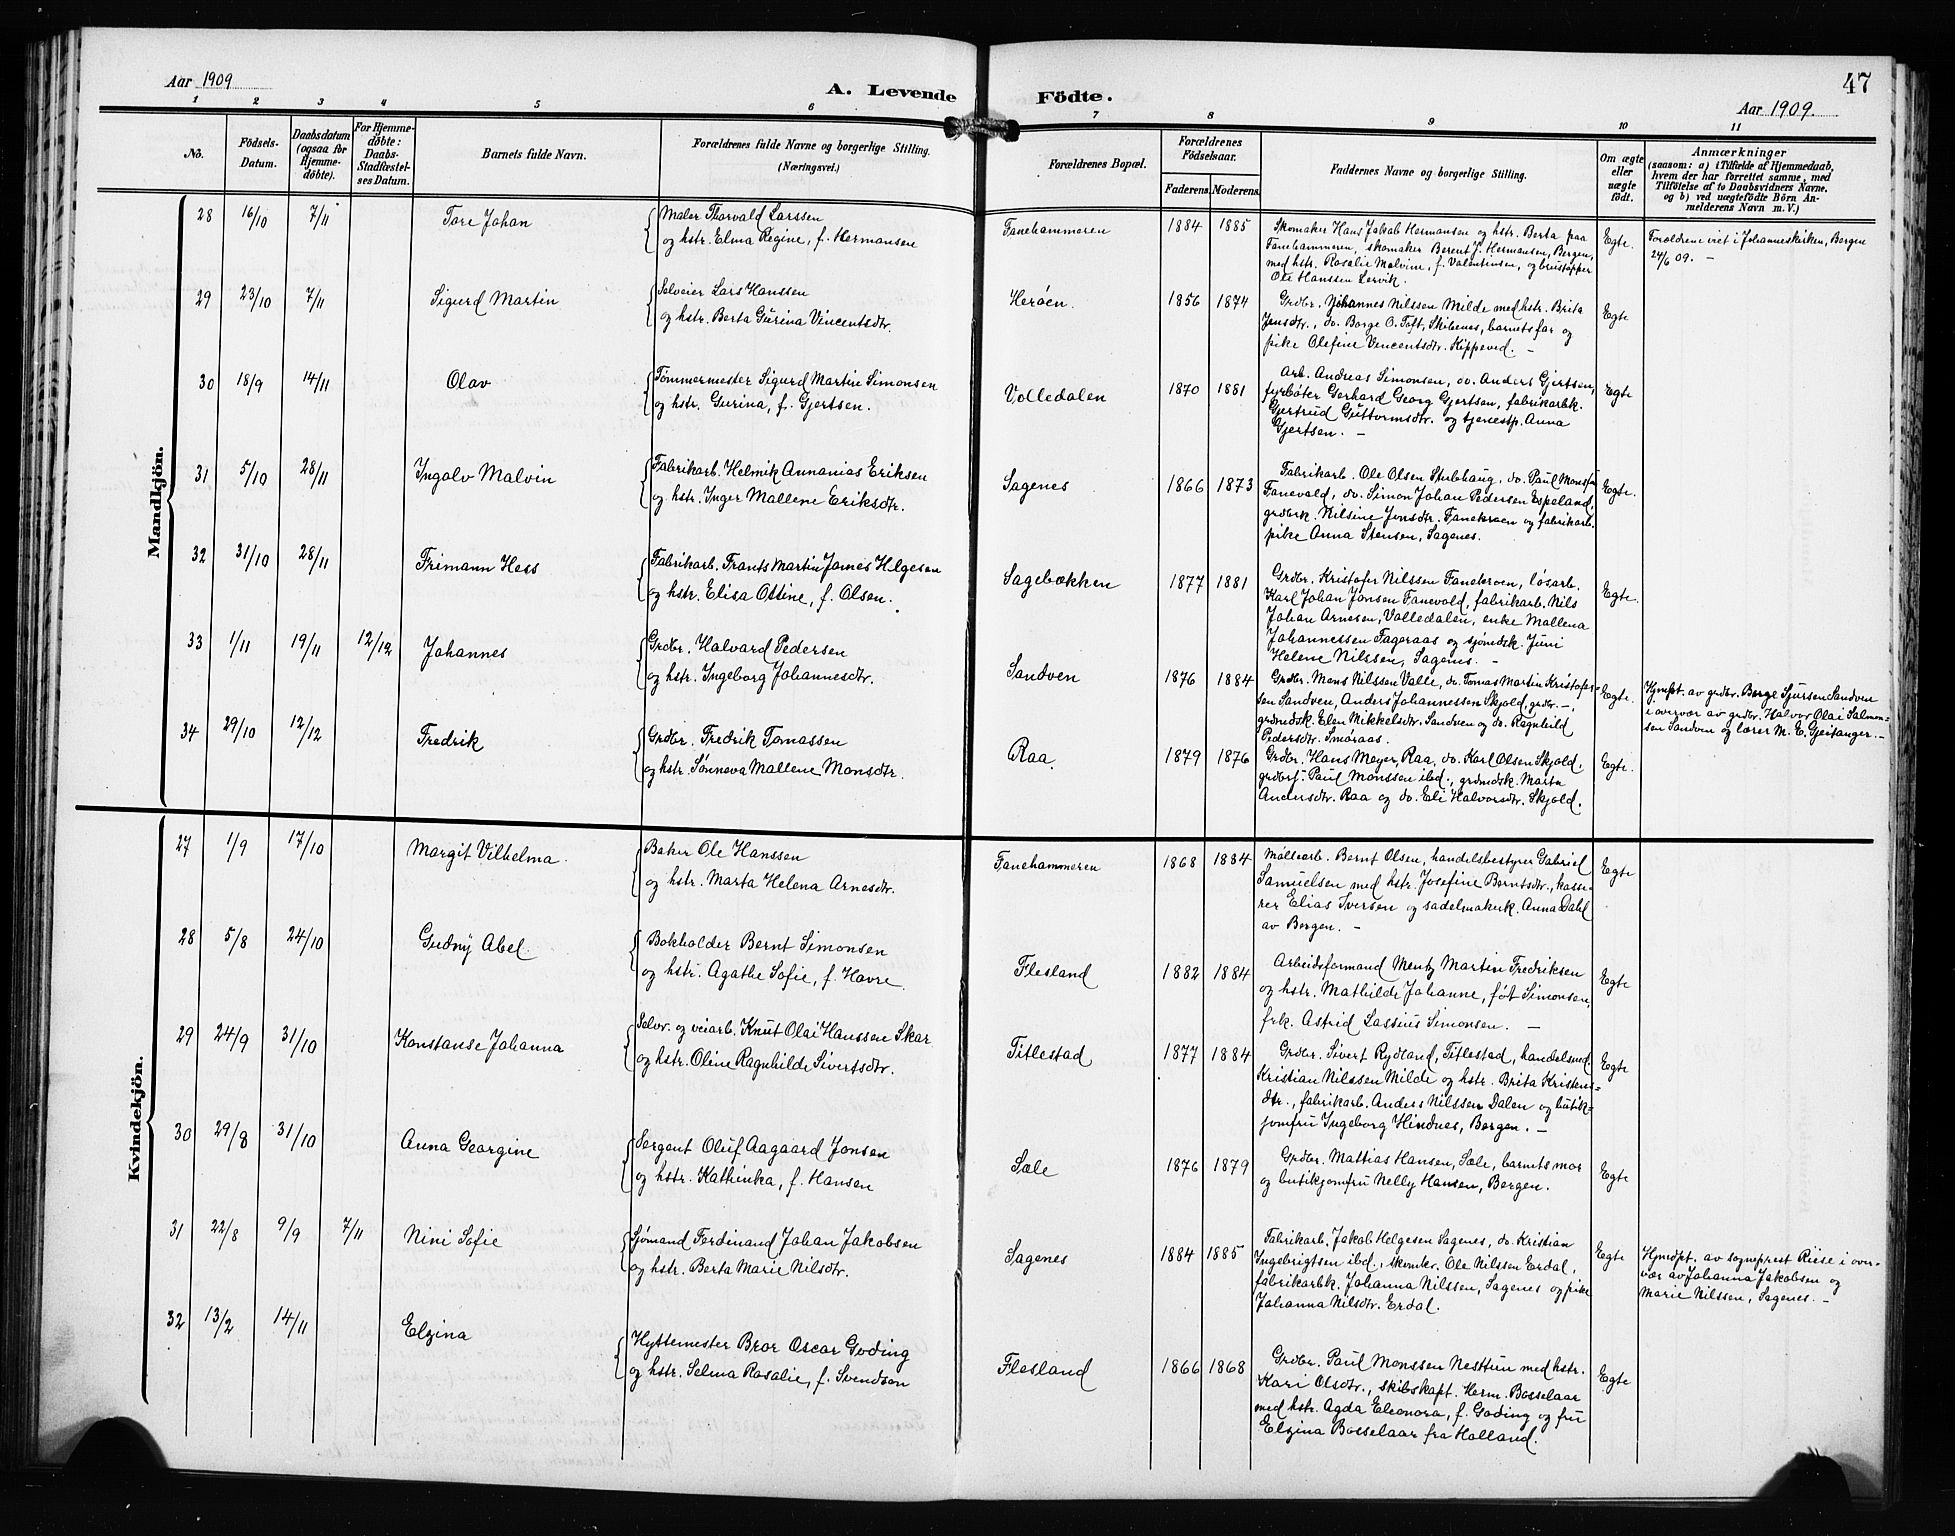 Aar 1909
A. Levende Födte.
47
Aar 1909.
1 2 3 4 5 6 7 8 9 10 11
No.
Födsels-
Datum.
Daabsdatum
(ogsaa for
Hjemme-
döbte).
For Hjemme-
döbte:
Daabs-
Stadfæstel-
ses Datum.
Barnets fulde Navn.
Forældrenes fulde Navne og borgerlige Stilling.
(Næringsvei.)
Forældrenes Bopæl.
Forældrenes
Födselsaar.
Faderens. Moderens.
Faddernes Navne og borgerlige Stilling.
Om ægte
eller
uægte
født.
Anmærkninger
(saasom: a) i Tilfælde af Hjemmedaab,
hvem der har forrettet samme, med
Tilföielse af to Daabsvidners Navne,
og b) ved uægtefödte Börn An-
melderens Navn m. V.)
Mandkjön.
28 16/10 7/11 Tore Johan
Maler Thorvald Larssen
og hstr. Elma Regine, f. Hermansen
Fanehammeren 1884 1885
Skomaker Hans Jakob Hermansen og hstr. Berta paa
Fanehammeren, skomaker Berent J. Hermansen, Bergen,
med hstr. Rosalie Malvine, f. Valentinsen, og
Ole Hanssen Lervik.
Egte.
Foreldrene viet i Johanneskirken, Bergen
24/6 09. –
29 23/10 7/11 Sigurd Martin
Selveier Lars Hanssen
og hstr. Berta Gurina Vincentsdtr.
Herøen. 1856 1874
Grdbr. Johannes Nilssen Milde med hstr. Brita
Jensdtr., do. Borge O. Toft, Skibenes, barnets far og
pike Olefine Vencentsdtr. Kippeved. –
Egte
30 18/9 14/11 Olav
Tømmermester Sigurd Martin Simonsen
og hstr. Gurina, f. Gjertsen.
Volledalen 1870 1881
Arb. Andreas Simonsen, do. Anders Gjertsen,
fyrbøter Gerhard Georg Gjertsen, fabrikarbk.
Gjertrud Guttormsdtr. og tjenestp. Anna
Gjertsen. –
Egte
31 5/10 28/11 Ingolv Malvin
Fabrikarb. Helmik Annanias Eriksen
og hstr. Inger Mallene Eriksdtr.
Sagenes 1866 1873
Fabrikarb. Ole Olsen Stubhaug, do. Paul Monsen
Fanevald, do. Simon Johan Pedersen Espeland,
grdbrk. Nilsine Jonsdtr. Fanekroen og fabrikarb.
pike Anna Stensen, Sagenes.
Egte.
32 31/10 28/11 Frimann Hess
Fabrikarb. Frants Martin James Helgesen
og hstr. Elisa Ottine, f. Olsen.
Sagebækken 1877 1881
Grdbr. Kristofer Nilssen Fanekroen, løsarb.
Karl Johan Jonsen Fanevold, fabrikarb. Nils
Johan Arnesen, Valledalen, enke Mallena
Johannessen Fageraas og sjømdsk. Juni
Helene Nilssen, Sagenes. –
Egte.
33 1/11 19/11 12/12 Johannes
Grdbr. Halvard Pedersen
og hstr. Ingeborg Johannesdtr.
Sandven 1876 1884
Grdbr. Mons Nilssen Valle, do. Tomas Martin Kristofer-
sen Sandven, Anders Johannessen Skjold, grdbr. –,
grdmdsk. Elen Mikkelsdtr. Sandven og do. Ragnhild
Pedersdtr. Smøraas.
Egte.
Hjmdpt. av grdbr. Berge Sjursen Sandven
i overvær av grdbr. Halvor Olai Salmon-
sen Sandven og lærer M. E. Gjeitanger. –
34 29/10 12/12 Fredrik
Grdbr. Fredrik Tomassen
og hstr. Sønneva Mallene Monsdtr.
Raa. 1879 1876
Grdbr. Hans Meyer, Raa, do. Karl Olsen Skjold,
grdbrf. Paul Monssen ibd., grdmdsk. Marta
Andersdtr. Raa og do. Eli Halvorsdtr. Skjold.
Egte.
Kvindekjön.
27 1/9 17/10 Margit Vilhelma.
Baker Ole Hanssen
og hstr. Marta Helena Arnesdtr.
Fanehammeren 1868 1884
Møllearb. Bernt Olsen, handelsbestyrer Gabriel
Samuelsen med hstr. Josefine Berntsdtr., kasse-
rer Elias Iversen og sadelmakerk. Anna Dahl
av Bergen. –
Egte
28 5/8 24/10 Gudny Abel.
Bokholder Bernt Simonsen
og hstr. Agathe Sofie, f. Havre.
Flesland 1882 1884
Arbeidsformand Mentz Martin Fredriksen
og hstr. Mathilde Johanne, født Simonsen,
frk. Astrid Lassius Simonsen. –
Egte
29 24/9 31/10 Konstanse Johanna
Selv. og veiarb. Knut Olai Hanssen Skar
og hstr. Oline Ragnhilde Sivertsdtr.
Titlestad 1877 1884
Grdbr. Sivert Rydland, Titlestad, handelsmd.
Kristian Nilssen Milde og hstr. Brita Kristens-
dtr., fabrikarb. Anders Nilssen Dalen og butik-
jomfru Ingeborg Hindnes, Bergen. –
Egte
30 29/8 31/10 Anna Georgine
Sergent Oluf Aagaard Jonsen
og hstr. Kathinka, f. Hansen
Sæle 1876 1879
Grdbr. Mattias Hansen, Sæle, barnets mor
og butikjomfru Nelly Hansen, Bergen.
Egte
31 22/8 9/9 7/11 Nini Sofie
Sjømand Ferdinand Johan Jakobsen
og hstr. Berta Marie Nilsdtr.
Sagenes 1884 1885
Fabrikarb. Jakob Helgesen Sagenes, do. Kristian
Ingebrigtsen ibd., skomkr. Ole Nilssen Erdal,
fabrikarbk. Johanna Nilssen, Sagenes og pike
Johanna Nilsdtr. Erdal.
Egte
Hjmdpt. av sogneprest Riise i over-
vær av Johanna Jakobsen og
Marie Nilssen, Sagenes. –
32 13/2 14/11 Elzina
Hyttemester Bror Oscar Goding
og hstr. Selma Rosalie, f. Svendson
Flesland 1866 1868
Grdbr. Paul Monssen Nesttun med hstr.
Kari Olsdtr., skibskapt. Herm. Bosselaar
med hstr. Agda Eleonora, f. Goding og fru
Elzina Bosselaar fra Holland.
Egte